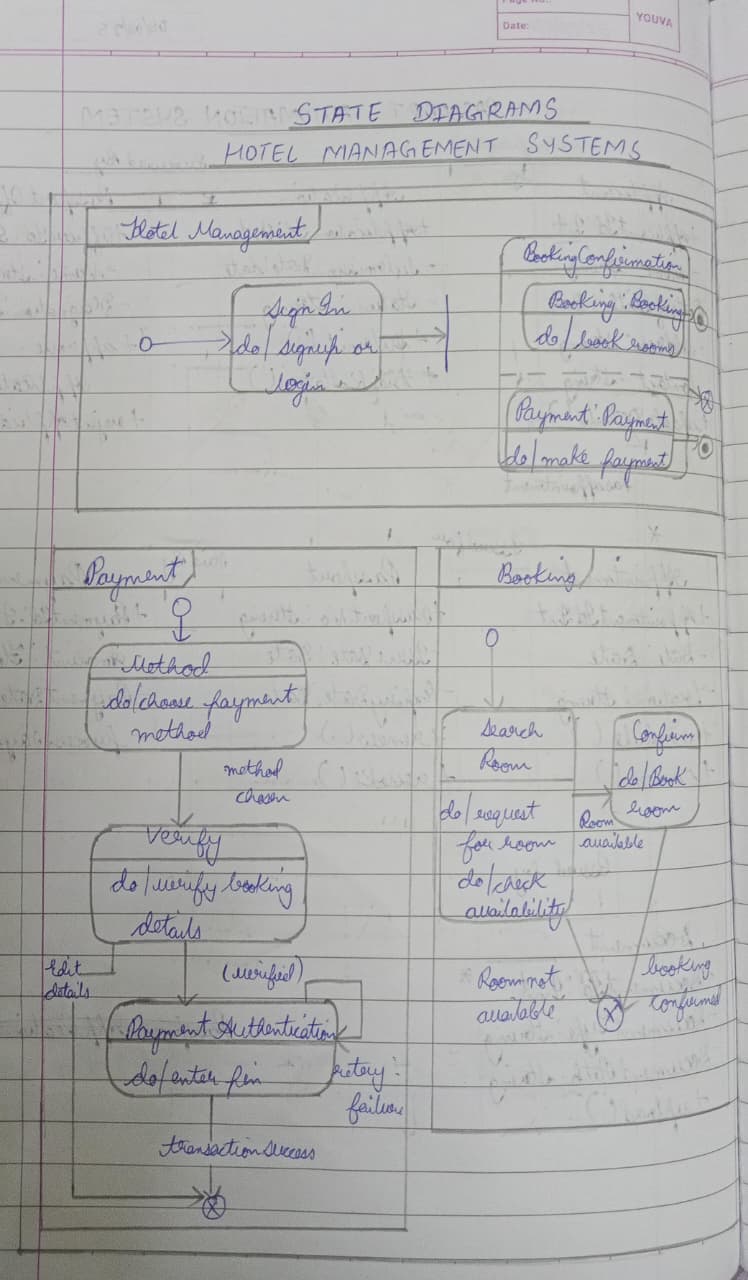 Page No.:
Date:
YOUVA
STATE DIAGRAMS
HOTEL MANAGEMENT SYSTEMS
Hotel Management
Sign In
do/ signup or
login
BookingConfirmation
Booking : Booking
do/book rooms
Payment : Payment
do/make payment
Payment
Method
do/choose payment
method
method
chosen
Verify
do/verify booking
details
Edit
details
(verified)
Payment Authentication
do/enter pin
retry :
failure
transaction success
X
Booking
Search
Room
do/request
for room
do/check
availability
Room
available
Confirm
do/Book
room
Room not
available
booking
confirmed
X